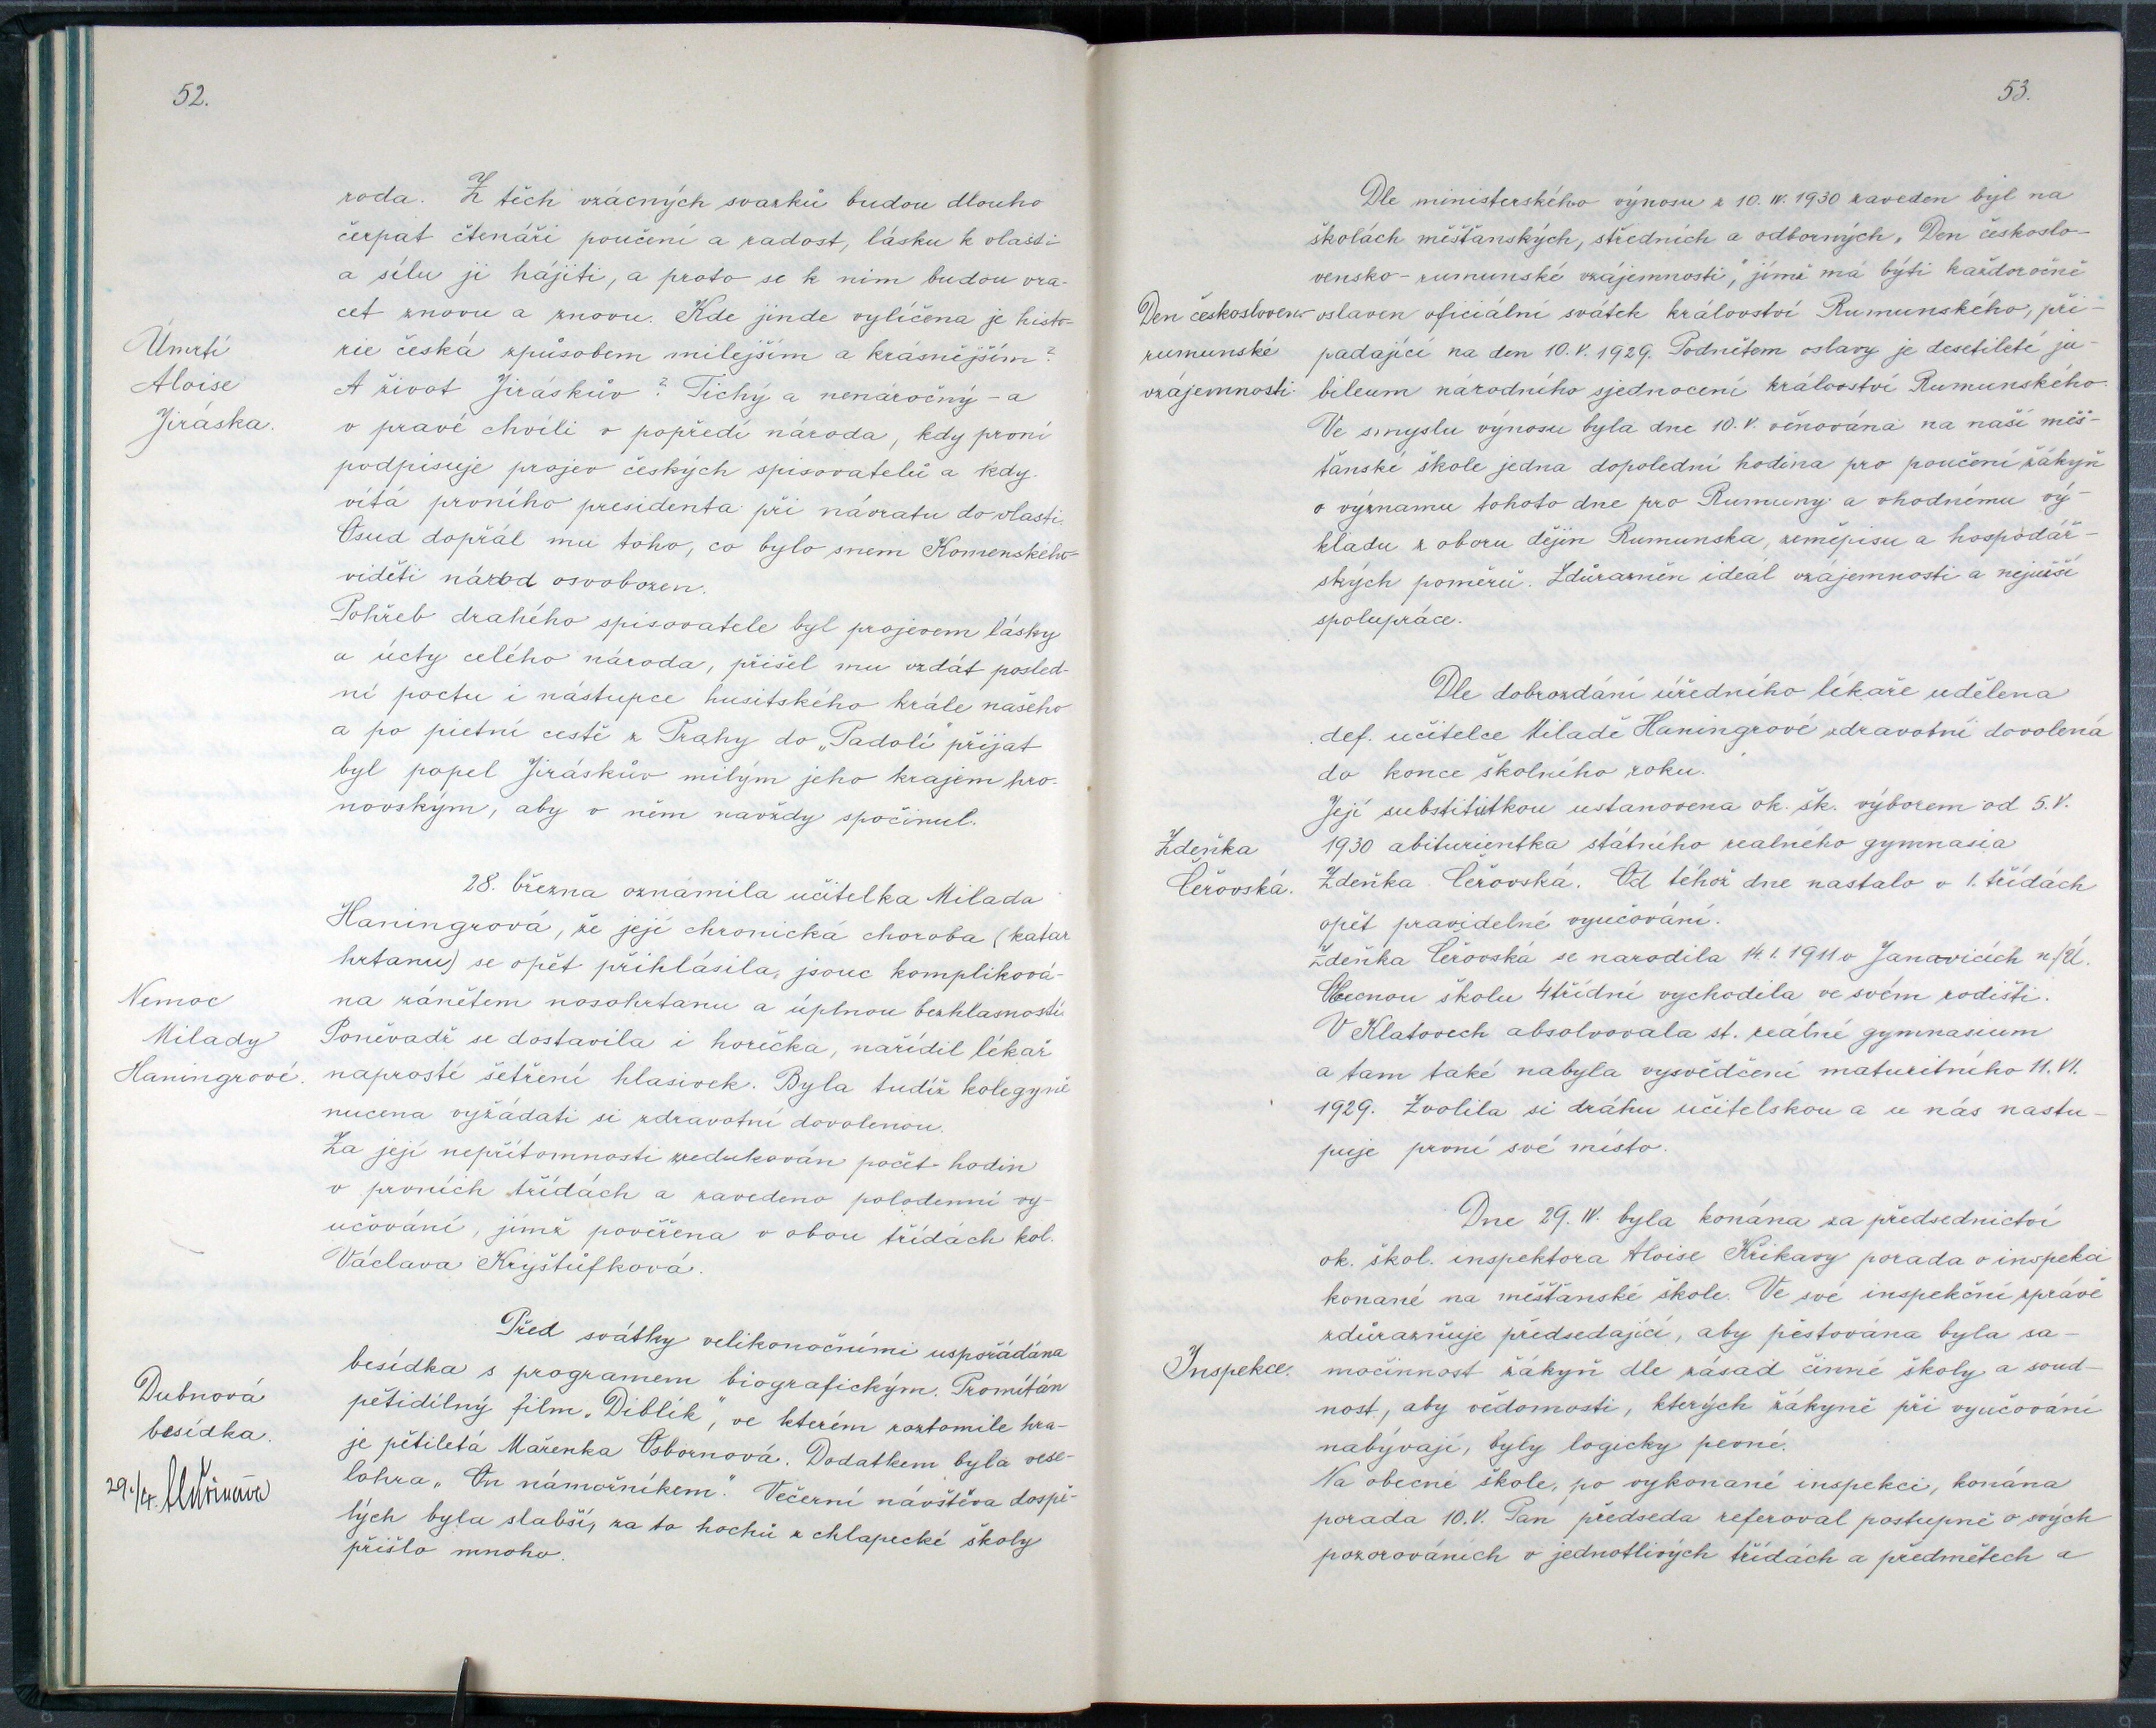 52.
roda. Z těch vzácných svazků budou dlouho
čerpat čtenáři poučení a radost, lásku k vlasti
a sílu ji hájiti, a proto se k nim budou vra-
cet znovu a znovu. Kde jinde vylíčena je histo-
rie česká způsobem milejším a krásnějším?
A život Jiráskův? Tichý a nenáročný - a
v pravé chvíli v popředí národa, kdy první
podpisuje projev českých spisovatelů a kdy
vítá prvního presidenta při návratu do vlasti.
Osud dopřál mu toho, co bylo snem Komenského
viděti národ osvobozen.
Úmrtí
Aloise
Jiráska.
Pohřeb drahého spisovatele byl projevem lásky
a úcty celého národa, přišel mu vzdát posled-
ní poctu i nástupce husitského krále našeho
a po pietní cestě z Prahy do „Padolí" přijat
byl popel Jiráskův milým jeho krajem hro-
novským, aby v něm navždy spočinul.
28. března oznámila učitelka Milada
Haningrová, že její chronická choroba (katar
hrtanu) se opět přihlásila, jsouc kompliková-
na zánětem nosohrtanu a úplnou bezhlasností.
Poněvadž se dostavila i horečka, nařídil lékař
naprosté šetření hlasivek. Byla tudíž kolegyně
nucena vyžádati si zdravotní dovolenou.
Nemoc
Milady
Haningrové.
Za její nepřítomnosti zredukován počet hodin
v prvních třídách a zavedeno polodenní vy-
učování, jímž pověřena v obou třídách kol.
Václava Kryštůfková.
Před svátky velikonočními uspořádána
besídka s programem biografickým. Promítán
pětidílný film „Diblík", ve kterém roztomile hra-
je pětiletá Mařenka Osbornová. Dodatkem byla vese-
lohra „On námořníkem". Večerní návštěva dospě-
lých byla slabší, za to hochů z chlapecké školy
přišlo mnoho.
Dubnová
besídka.
29./IV.
53.
Dle ministerského výnosu z 10. IV. 1930 zaveden byl na
školách měšťanských, středních a odborných „Den českoslo-
vensko-rumunské vzájemnosti," jímž má býti každoročně
oslaven oficiální svátek království Rumunského, při-
padající na den 10. V. 1929. Podnětem oslavy je desetileté ju-
bileum národního sjednocení království Rumunského.
Den českosloven.-
rumunské
vzájemnosti.
Ve smyslu výnosu byla dne 10. V. věnována na naší měš-
ťanské škole jedna dopolední hodina pro poučení žákyň
o významu tohoto dne pro Rumuny a vhodnému vý-
kladu z oboru dějin Rumunska, zeměpisu a hospodář-
ských poměrů. Zdůrazněn ideal vzájemnosti a nejužší
spolupráce.
Dle dobrozdání úředního lékaře udělena
def. učitelce Miladě Haningrové zdravotní dovolená
do konce školního roku.
Její substitutkou ustanovena ok. šk. výborem od 5. V.
1930 abiturientka státního realného gymnasia
Zdeňka Ceřovská. Od téhož dne nastalo v 1. třídách
opět pravidelné vyučování.
Zdeňka
Ceřovská.
Zdeňka Ceřovská se narodila 14. 1. 1911 v Janovicích n/Ú.
Obecnou školu 4třídní vychodila ve svém rodišti.
V Klatovech absolvovala st. reálné gymnasium
a tam také nabyla vysvědčení maturitního 11. VI.
1929. Zvolila si dráhu učitelskou a u nás nastu-
puje první své místo.
Dne 29. IV. byla konána za předsednictví
ok. škol. inspektora Aloise Křikavy porada o inspekci
konané na měšťanské škole. Ve své inspekční zprávě
zdůrazňuje předsedající, aby pěstována byla sa-
močinnost žákyň dle zásad činné školy a soud-
nost, aby vědomosti, kterých žákyně při vyučování
nabývají, byly logicky pevné.
Inspekce.
Na obecné škole, po vykonané inspekci, konána
porada 10. V. Pan předseda referoval postupně o svých
pozorováních v jednotlivých třídách a předmětech a